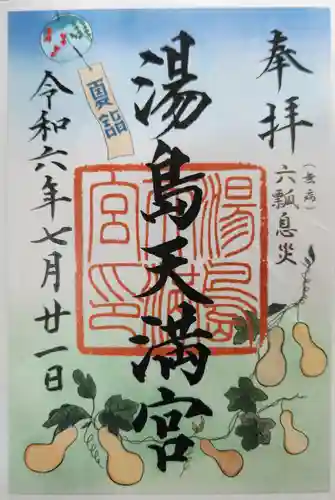 奉拝
(無病)
六瓢息災
湯島天満宮
湯島天満宮印
夏詣
令和六年七月廿一日